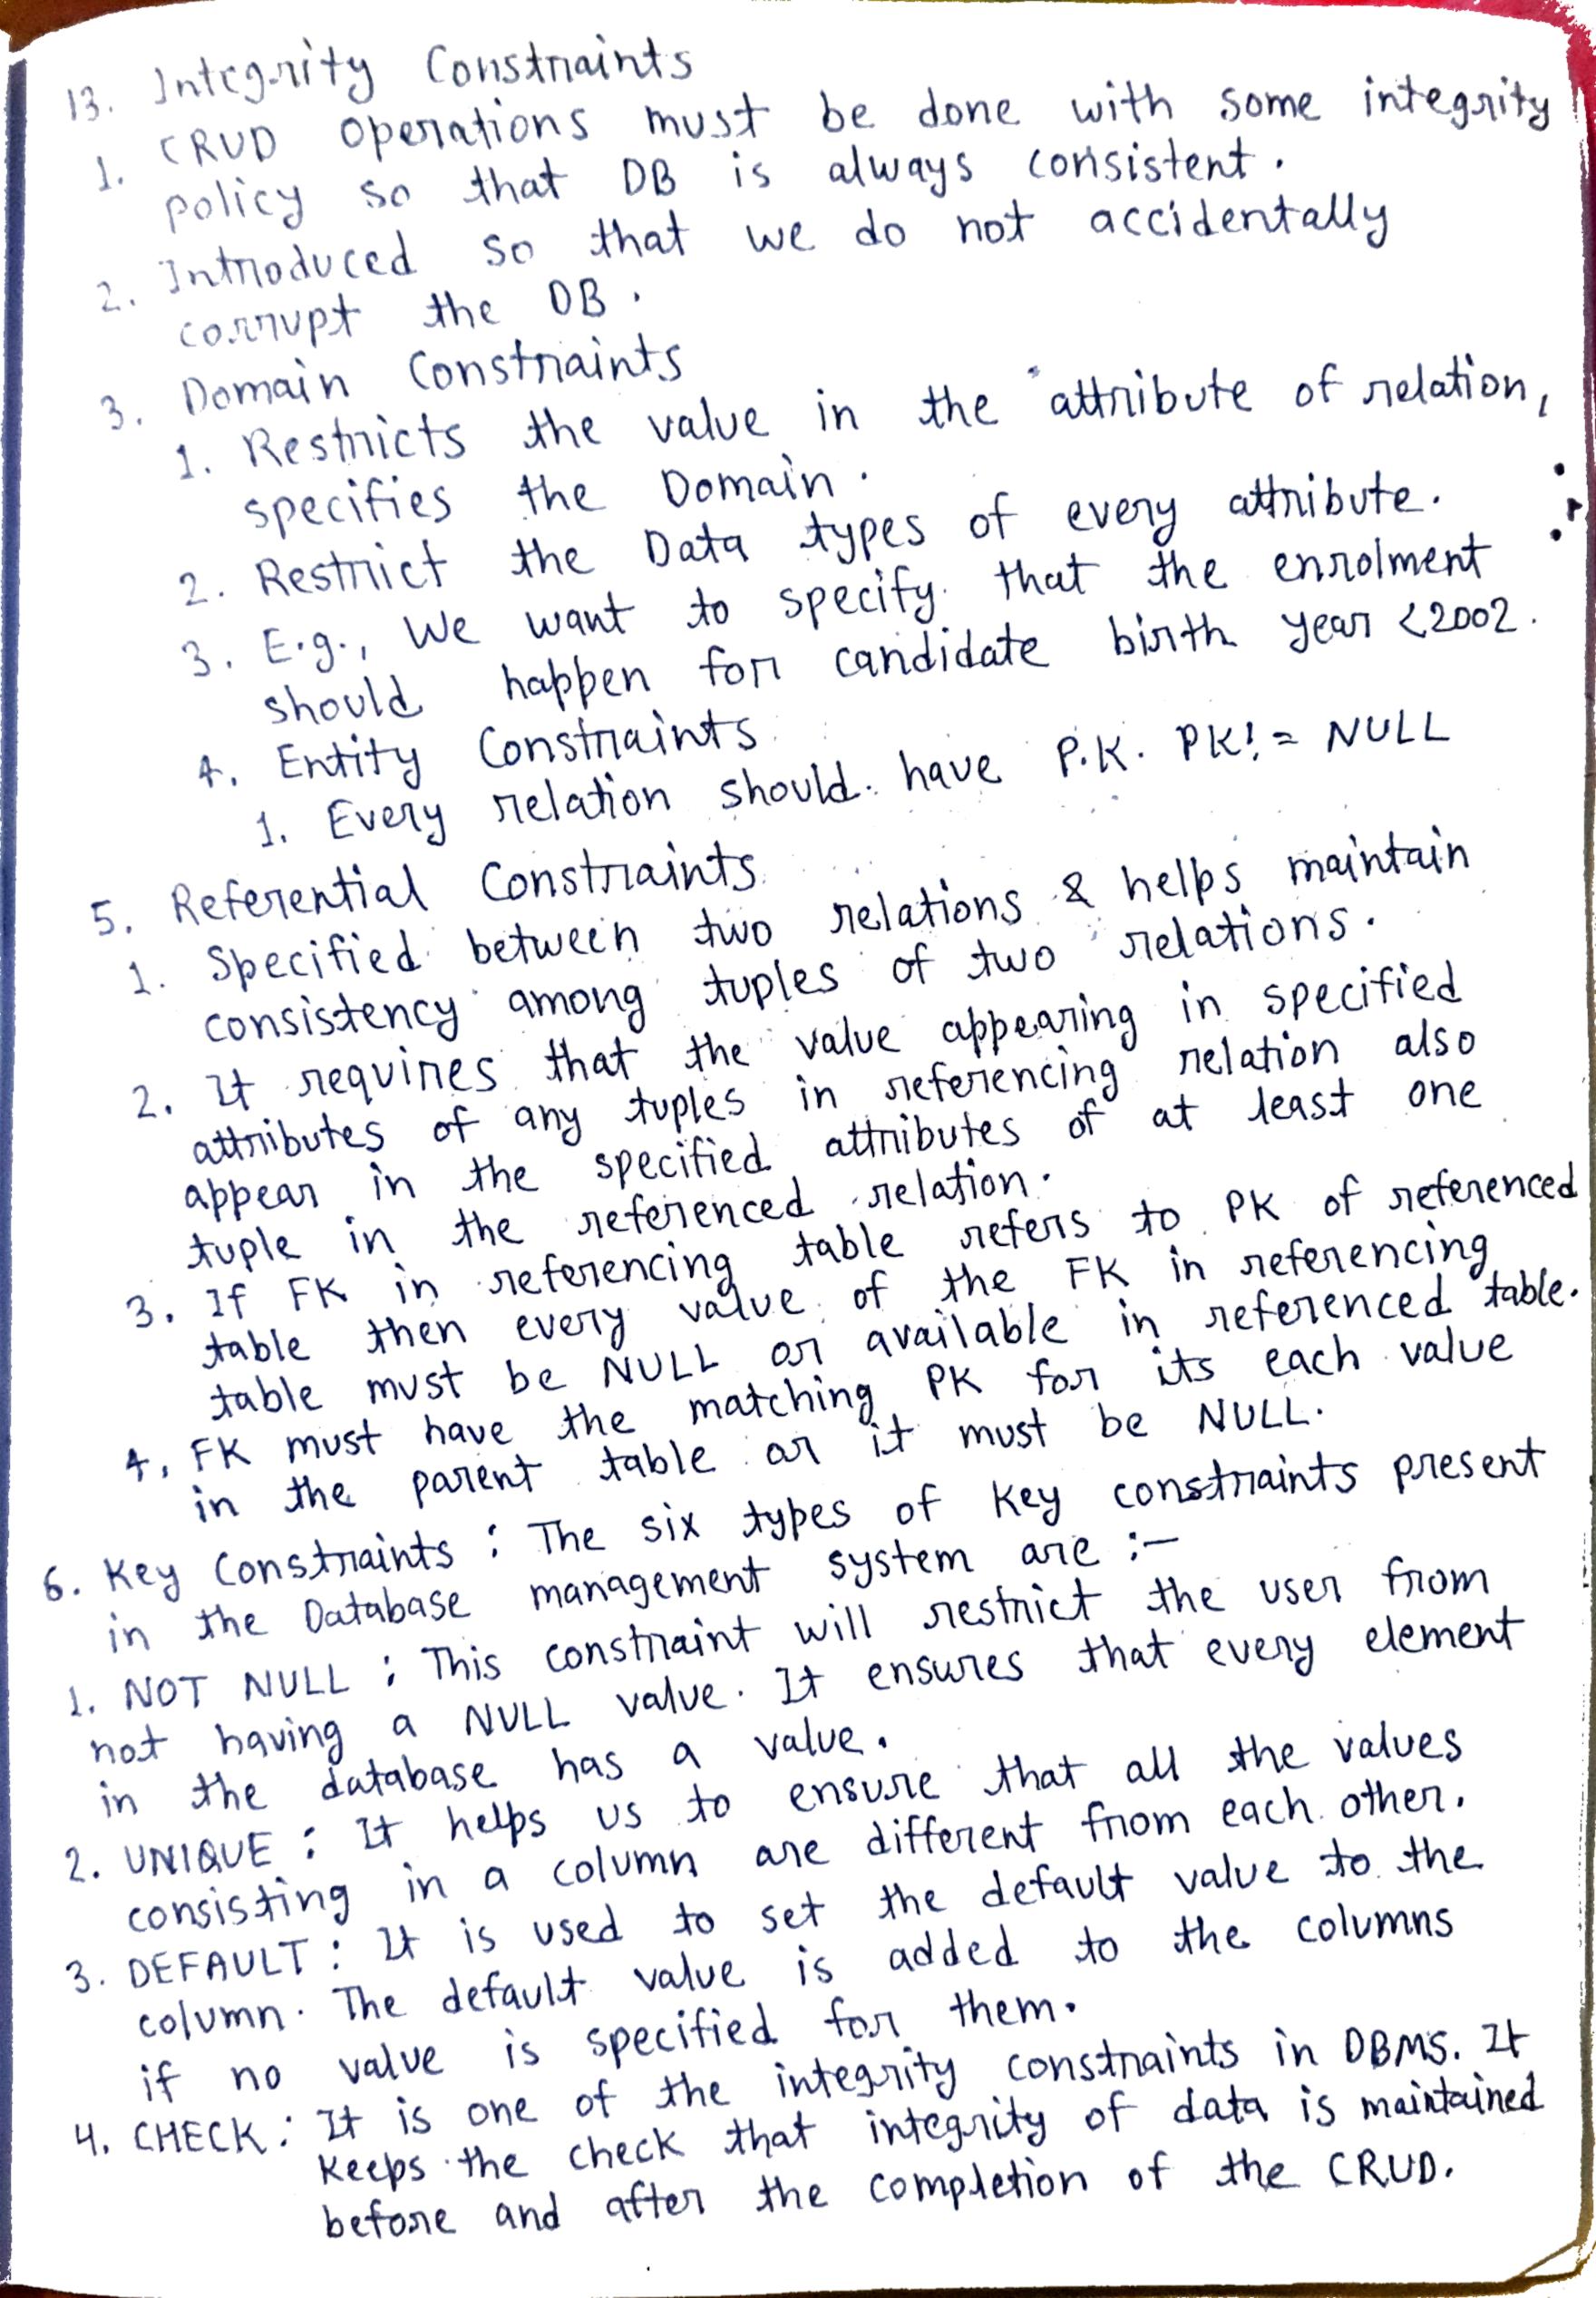 13. Integrity Constraints
1. CRUD Operations must be done with some integrity
policy so that DB is always consistent.
2. Introduced so that we do not accidentally
corrupt the DB.
3. Domain Constraints
1. Restricts the value in the attribute of relation,
specifies the Domain.
2. Restrict the Data types of every attribute.
3. E.g., We want to specify that the enrolment
should happen for candidate birth year <2002.
4. Entity Constraints
1. Every relation should have P.K. PK != NULL
5. Referential Constraints
1. Specified between two relations & helps maintain
consistency among tuples of two relations.
2. It requires that the value appearing in specified
attributes of any tuples in referencing relation also
appear in the specified attributes of at least one
tuple in the referenced relation.
3. If FK in referencing table refers to PK of referenced
table then every value of the FK in referencing
table must be NULL or available in referenced table.
4. FK must have the matching PK for its each value
in the parent table or it must be NULL.
6. Key Constraints : The six types of key constraints present
in the Database management system are :-
1. NOT NULL : This constraint will restrict the user from
not having a NULL value. It ensures that every element
in the database has a value.
2. UNIQUE : It helps us to ensure that all the values
consisting in a column are different from each other.
3. DEFAULT : It is used to set the default value to the
column. The default value is added to the columns
if no value is specified for them.
4. CHECK : It is one of the integrity constraints in DBMS. It
keeps the check that integrity of data is maintained
before and after the completion of the CRUD.